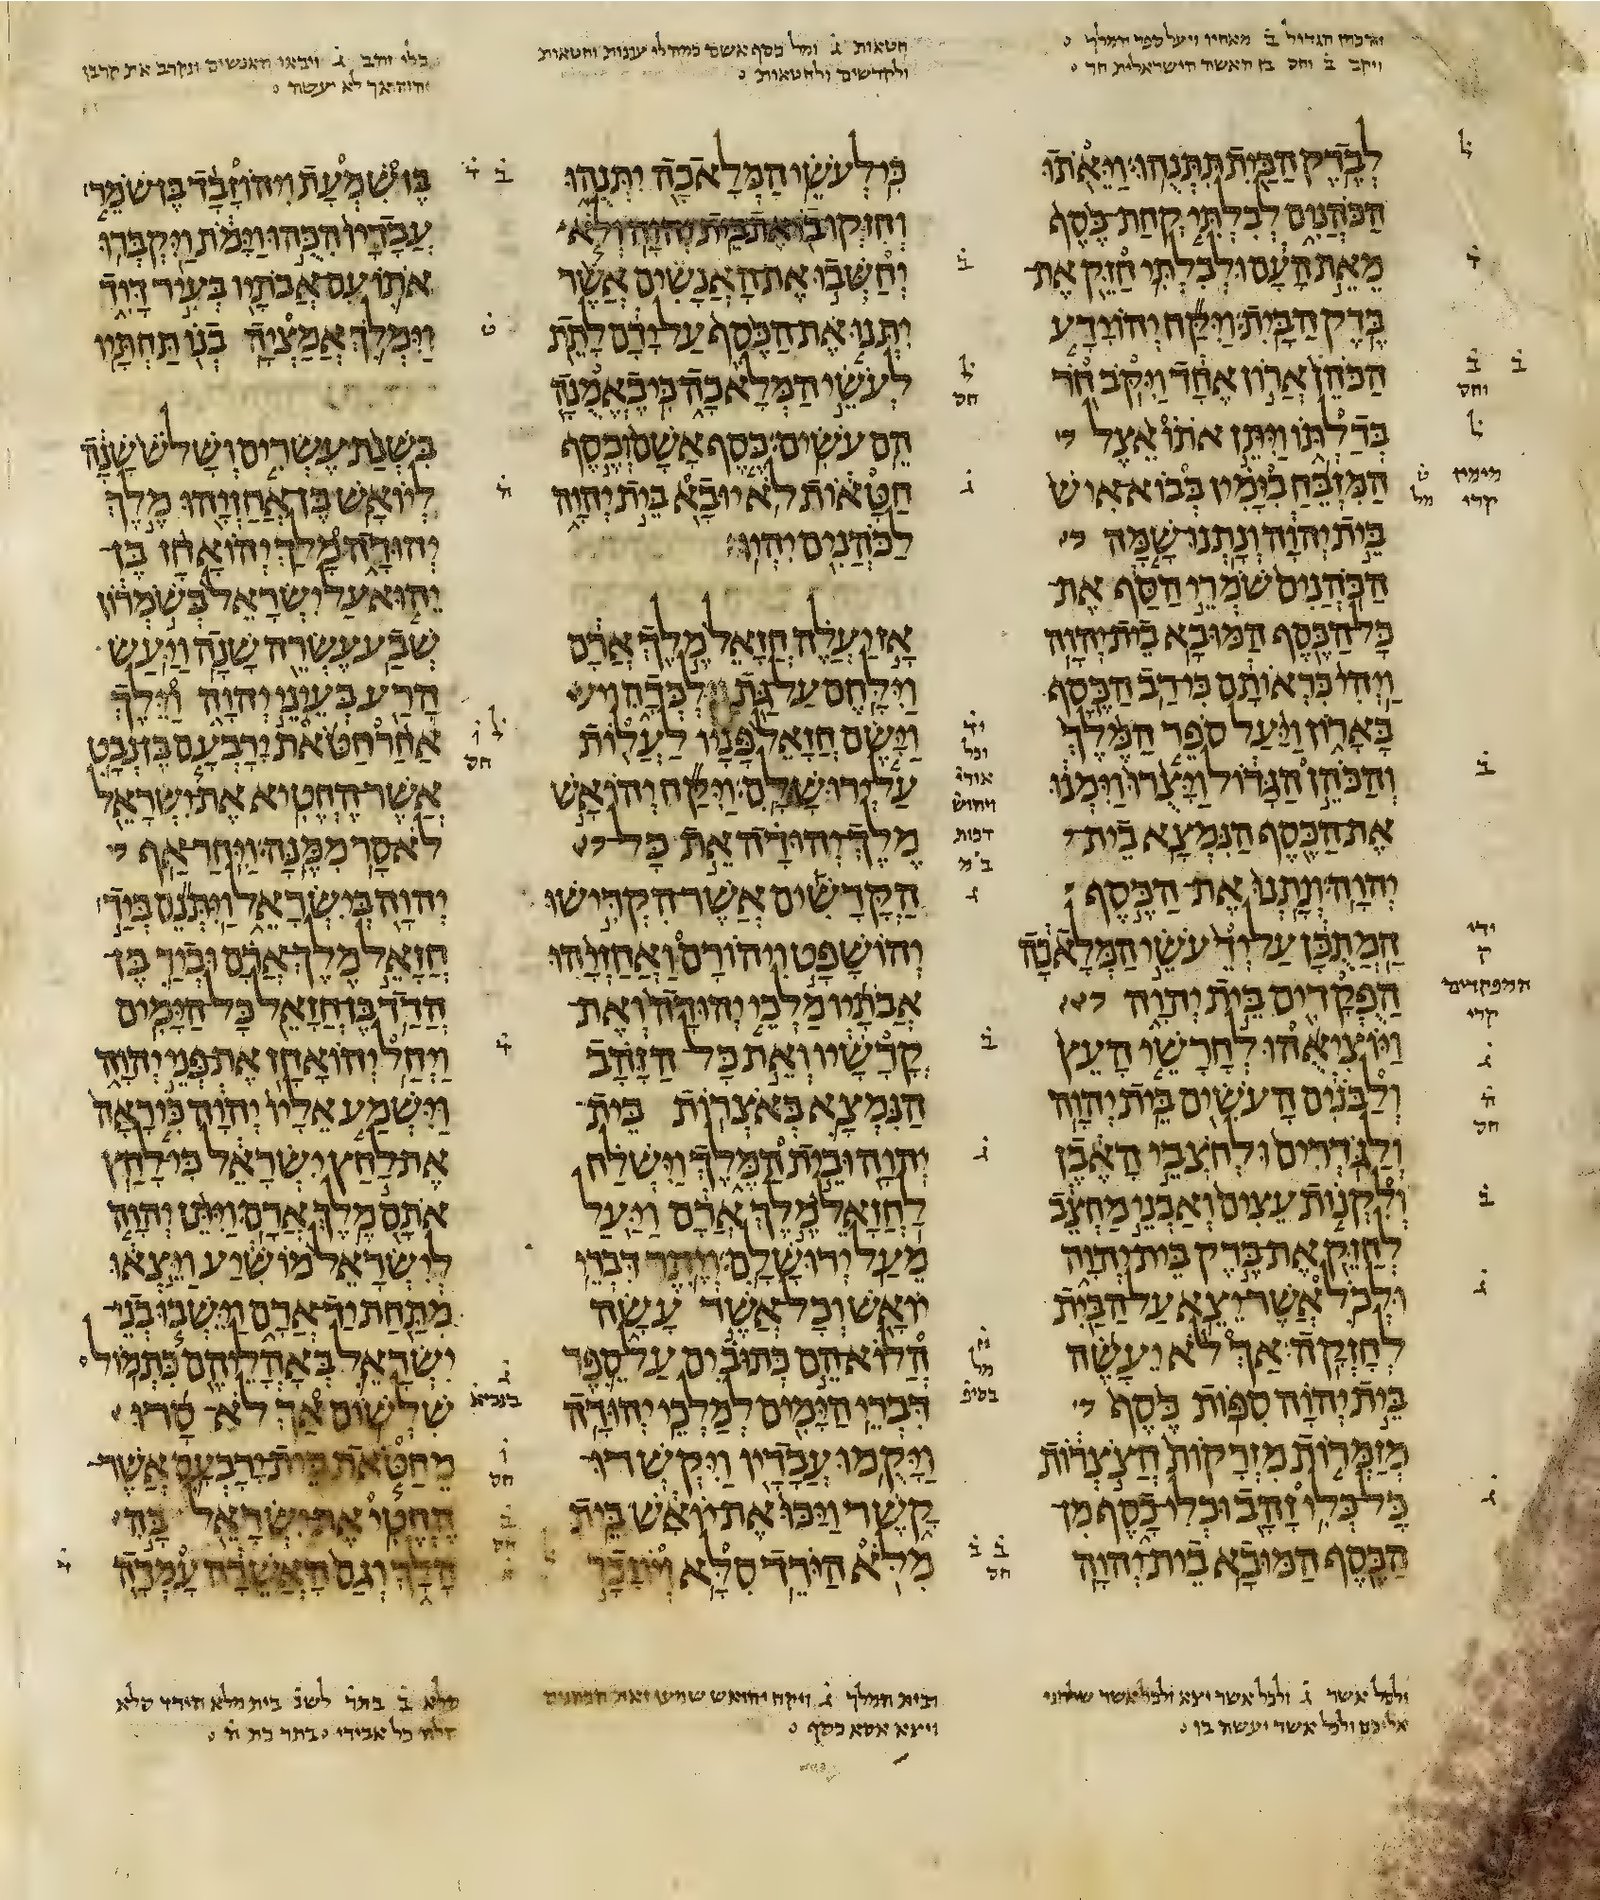 והכהן הגדול ב מאחיו ויעל ספר המלך
ויקב ב וחס בן האשה הישראלית חר
חטאות ג ומל כסף אשם כמהלי עונות וחטאות
ולקדשים ולחטאות
כלי זהב ג ויבאו האנשים ונקרב את קרבן
יהוה אך לא יעשה
לְבֶדֶק הַבַּיִת תִּתְּנֻהוּ וַיֵּאֹתוּ
הַכֹּהֲנִים לְבִלְתִּי קְחַת כֶּסֶף
מֵאֵת הָעָם וּלְבִלְתִּי חַזֵּק אֶת
בֶּדֶק הַבָּיִת וַיִּקַּח יְהוֹיָדָע
הַכֹּהֵן אֲרוֹן אֶחָד וַיִּקֹּב חֹר
בְּדַלְתּוֹ וַיִּתֵּן אֹתוֹ אֵצֶל
הַמִּזְבֵּחַ בַּיָּמִין בְּבוֹא אִישׁ
בֵּית יְהוָה וְנָתְנוּ שָׁמָּה
הַכֹּהֲנִים שֹׁמְרֵי הַסַּף אֶת
כָּל הַכֶּסֶף הַמּוּבָא בֵית יְהוָה
וַיְהִי כִּרְאוֹתָם כִּי רַב הַכֶּסֶף
בָּאָרוֹן וַיַּעַל סֹפֵר הַמֶּלֶךְ
וְהַכֹּהֵן הַגָּדוֹל וַיָּצֻרוּ וַיִּמְנוּ
אֶת הַכֶּסֶף הַנִּמְצָא בֵית
יְהוָה וְנָתְנוּ אֶת הַכֶּסֶף
הַמְתֻכָּן עַל יְדֵ עֹשֵׂי הַמְּלָאכָה
הַפְּקֻדִים בֵּית יְהוָה
וַיּוֹצִיאֻהוּ לְחָרָשֵׁי הָעֵץ
וְלַבֹּנִים הָעֹשִׂים בֵּית יְהוָה
וְלַגֹּדְרִים וּלְחֹצְבֵי הָאֶבֶן
וְלִקְנוֹת עֵצִים וְאַבְנֵי מַחְצֵב
לְחַזֵּק אֶת בֶּדֶק בֵּית יְהוָה
וּלְכֹל אֲשֶׁר יֵצֵא עַל הַבַּיִת
לְחָזְקָה אַךְ לֹא יֵעָשֶׂה
בֵּית יְהוָה סִפּוֹת כֶּסֶף
מְזַמְּרוֹת מִזְרָקוֹת חֲצֹצְרוֹת
כָּל כְּלִי זָהָב וּכְלִי כָסֶף מִן
הַכֶּסֶף הַמּוּבָא בֵית יְהוָה
כִּי לְעֹשֵׂי הַמְּלָאכָה יִתְּנֻהוּ
וְחִזְּקוּ בוֹ אֶת בֵּית יְהוָה וְלֹא
יְחַשְּׁבוּ אֶת הָאֲנָשִׁים אֲשֶׁר
יִתְּנוּ אֶת הַכֶּסֶף עַל יָדָם לָתֵת
לְעֹשֵׂי הַמְּלָאכָה כִּי בֶאֱמֻנָה
הֵם עֹשִׂים כֶּסֶף אָשָׁם וְכֶסֶף
חַטָּאוֹת לֹא יוּבָא בֵּית יְהוָה
לַכֹּהֲנִים יִהְיוּ
אָז יַעֲלֶה חֲזָאֵל מֶלֶךְ אֲרָם
וַיִּלָּחֶם עַל גַּת וַיִּלְכְּדָהּ וַיָּשֶׂ
וַיָּשֶׂם חֲזָאֵל פָּנָיו לַעֲלוֹת
עַל יְרוּשָׁלִָם וַיִּקַּח יְהוֹאָשׁ
מֶלֶךְ יְהוּדָה אֵת כָּל
הַקֳּדָשִׁים אֲשֶׁר הִקְדִּישׁוּ
יְהוֹשָׁפָט וִיהוֹרָם וַאֲחַזְיָהוּ
אֲבֹתָיו מַלְכֵי יְהוּדָה וְאֶת
קֳדָשָׁיו וְאֵת כָּל הַזָּהָב
הַנִּמְצָא בְּאֹצְרוֹת בֵּית
יְהוָה וּבֵית הַמֶּלֶךְ וַיִּשְׁלַח
לַחֲזָאֵל מֶלֶךְ אֲרָם וַיַּעַל
מֵעַל יְרוּשָׁלִָם וְיֶתֶר דִּבְרֵי
יוֹאָשׁ וְכָל אֲשֶׁר עָשָׂה
הֲלוֹא הֵם כְּתוּבִים עַל סֵפֶר
דִּבְרֵי הַיָּמִים לְמַלְכֵי יְהוּדָה
וַיָּקֻמוּ עֲבָדָיו וַיִּקְשְׁרוּ
קָשֶׁר וַיַּכּוּ אֶת יוֹאָשׁ בֵּית
מִלֹּא הַיּוֹרֵד סִלָּא וְיוֹזָכָר
בֶּן שִׁמְעָת וִיהוֹזָבָד בֶּן שֹׁמֵר
עֲבָדָיו הִכֻּהוּ וַיָּמֹת וַיִּקְבְּרוּ
אֹתוֹ עִם אֲבֹתָיו בְּעִיר דָּוִד
וַיִּמְלֹךְ אֲמַצְיָה בְנוֹ תַּחְתָּיו
בִּשְׁנַת עֶשְׂרִים וְשָׁלֹשׁ שָׁנָה
לְיוֹאָשׁ בֶּן אֲחַזְיָהוּ מֶלֶךְ
יְהוּדָה מָלַךְ יְהוֹאָחָז בֶּן
יֵהוּא עַל יִשְׂרָאֵל בְּשֹׁמְרוֹן
שְׁבַע עֶשְׂרֵה שָׁנָה וַיַּעַשׂ
הָרַע בְּעֵינֵי יְהוָה וַיֵּלֶךְ
אַחַר חַטֹּאת יָרָבְעָם בֶּן נְבָט
אֲשֶׁר הֶחֱטִיא אֶת יִשְׂרָאֵל
לֹא סָר מִמֶּנָּה וַיִּחַר אַף
יְהוָה בְּיִשְׂרָאֵל וַיִּתְּנֵם בְּיַד
חֲזָאֵל מֶלֶךְ אֲרָם וּבְיַד בֶּן
הֲדַד בֶּן חֲזָאֵל כָּל הַיָּמִים
וַיְחַל יְהוֹאָחָז אֶת פְּנֵי יְהוָה
וַיִּשְׁמַע אֵלָיו יְהוָה כִּי רָאָה
אֶת לַחַץ יִשְׂרָאֵל כִּי לָחַץ
אֹתָם מֶלֶךְ אֲרָם וַיִּתֵּן יְהוָה
לְיִשְׂרָאֵל מוֹשִׁיעַ וַיֵּצְאוּ
מִתַּחַת יַד אֲרָם וַיֵּשְׁבוּ בְנֵי
יִשְׂרָאֵל בְּאָהֳלֵיהֶם כִּתְמוֹל
שִׁלְשׁוֹם אַךְ לֹא סָרוּ
מֵחַטֹּאת בֵּית יָרָבְעָם אֲשֶׁר
הֶחֱטִי אֶת יִשְׂרָאֵל בָּהּ
הָלָךְ וְגַם הָאֲשֵׁרָה עָמְדָה
ולכל אשר ג ולכל אשר יצא ולכל אשר שלחני
אליכם ולכל אשר יעשה בו
ובית המלך ג ויקח יהואש שמעו זאת הכהנים
ויצא אסא כסף
מלא ב בתר לשנ בית מלא היורד סלא
סלה כל אבירי בתר כת ה